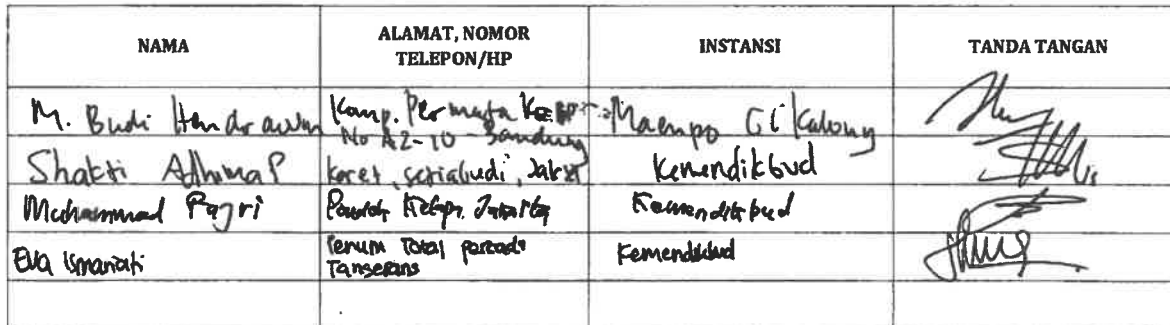 NAMA ALAMAT, NOMOR TELEPON/HP INSTANSI TANDA TANGAN
M. Budi Hendrawan Komp. Permata Maenpo Cikalong
No A2-10 - Bandung
Shakti Adhima P Karet, setiabudi, Jaksel Kemendikbud
Muhammad Fajri Pondok Kelapa, Jakarta Kemendikbud
Eva Ismariati Perum Total persada Kemendikbud
Tangerang